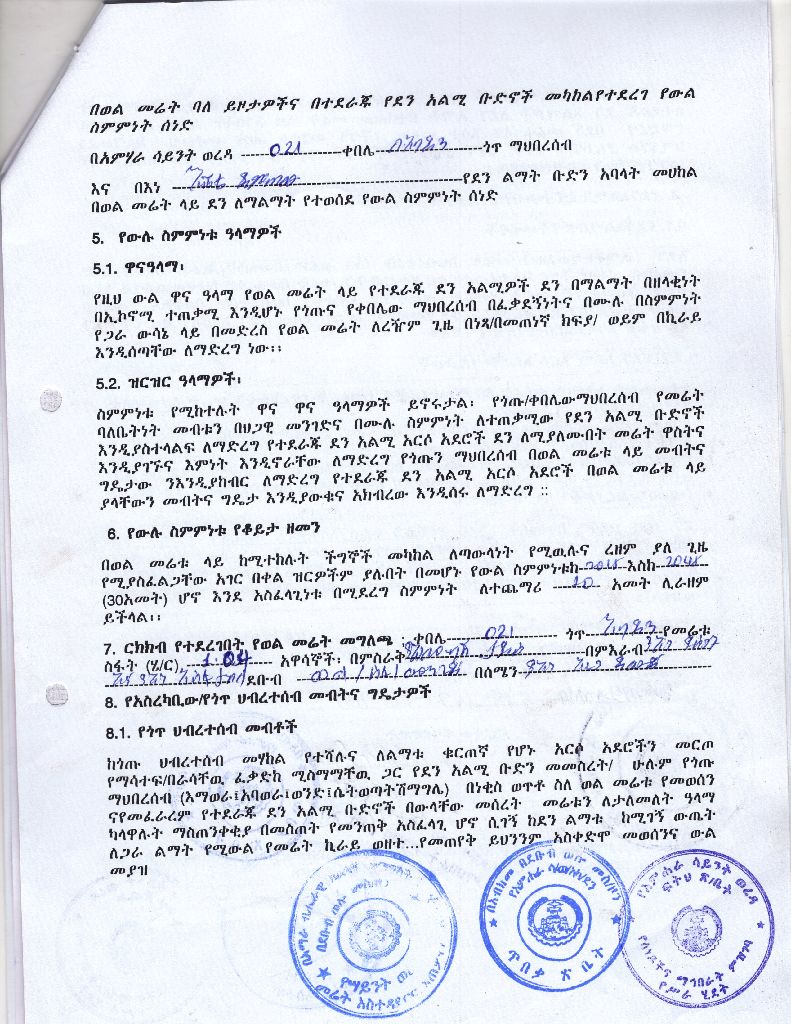 በወል መሬት ባለ ይዞታዎችና በተደራጁ የደን አልሚ ቡድኖች መካከልየተደረገ የውል
ስምምነት ሰነድ
በአምሃራ ሳይንት ወረዳ 021 ቀበሌ ጎጥ ማህበረሰብ
እና በእነ የደን ልማት ቡድን አባላት መሀከል
በወል መሬት ላይ ደን ለማልማት የተወሰደ የውል ስምምነት ሰነድ
5. የውሉ ስምምነቱ ዓላማዎች
5.1. ዋናዓላማ፡
የዚህ ውል ዋና ዓላማ የወል መሬት ላይ የተደራጁ ደን አልሚዎች ደን በማልማት በዘላቂነት
በኢኮኖሚ ተጠቃሚ እንዲሆኑ የጎጡና የቀበሌው ማህበረሰብ በፈቃደኝነትና በሙሉ በስምምነት
የጋራ ውሳኔ ላይ በመድረስ የወል መሬት ለረዥም ጊዜ በነጻ/በመጠነኛ ክፍያ/ ወይም በኪራይ
እንዲሰጣቸው ለማድረግ ነው፡፡
5.2. ዝርዝር ዓላማዎች፡
ስምምነቱ የሚከተሉት ዋና ዋና ዓላማዎች ይኖሩታል፡ የጎጡ/ቀበሌውማህበረሰብ የመሬት
ባለቤትነት መብቱን በህጋዊ መንገድና በሙሉ ስምምነት ለተጠቃሚው የደን አልሚ ቡድኖች
እንዲያስተላልፍ ለማድረግ የተደራጁ ደን አልሚ አርሶ አደሮች ደን ለሚያለሙበት መሬት ዋስትና
እንዲያገኙና እምነት እንዲኖራቸው ለማድረግ የጎጡን ማህበረሰብ በወል መሬቱ ላይ መብትና
ግዴታው ንእንዲያከብር ለማድረግ የተደራጁ ደን አልሚ አርሶ አደሮች በወል መሬቱ ላይ
ያላቸውን መብትና ግዴታ እንዲያውቁና አክብረው እንዲሰሩ ለማድረግ ::
6. የውሉ ስምምነቱ የቆይታ ዘመን
በወል መሬቱ ላይ ከሚተከሉት ችግኞች መካከል ለጣውላነት የሚዉሉና ረዘም ያለ ጊዜ
የሚያስፈልጋቸው አገር በቀል ዝርዎችም ያሉበት በመሆኑ የውል ስምምነቱከ 2015 እስከ 2045
(30አመት) ሆኖ እንደ አስፈላጊነቱ በሚደረግ ስምምነት ለተጨማሪ 10 አመት ሊራዘም
ይችላል፡፡
7. ርክክብ የተደረገበት የወል መሬት መግለጫ ፡ ቀበሌ 021 ጎጥ የመሬቱ
ስፋት (ሄ/ር) 1.04 አዋሳኞች፡ በምስራቅ በምእራብ
ደቡብ በሰሜን
8. የአስረካቢው/የጎጥ ህብረተሰብ መብትና ግዴታዎች
8.1. የጎጥ ህብረተሰብ መብቶች
ከጎጡ ህብረተሰብ መሃከል የተሻሉና ለልማቱ ቁርጠኛ የሆኑ አርሶ አደሮችን መርጦ
የማሳተፍ/በራሳቸዉ ፈቃድከ ሚስማማቸዉ ጋር የደን አልሚ ቡድን መመስረት/ ሁሉም የጎጡ
ማህበረሰብ (እማወራ፤አባወራ፤ወንድ፤ሴትወጣትሽማግሌ) በነቂስ ወጥቶ ስለ ወል መሬቱ የመወሰን
ናየመፈራረም የተደራጁ ደን አልሚ ቡድኖች በውላቸው መሰረት መሬቱን ለታለመለት ዓላማ
ካላዋሉት ማስጠንቀቂያ በመስጠት የመንጠቅ አስፈላጊ ሆኖ ሲገኝ ከደን ልማቱ ከሚገኝ ውጤት
ለጋራ ልማት የሚውል የመሬት ኪራይ ወዘተ...የመጠየቅ ይህንንም አስቀድሞ መወሰንና ውል
መያዝ
የአምሐራ ሳይንት ወረዳ
ፍትህ ጽ/ቤት
ጥበቃ ጽ ቤት